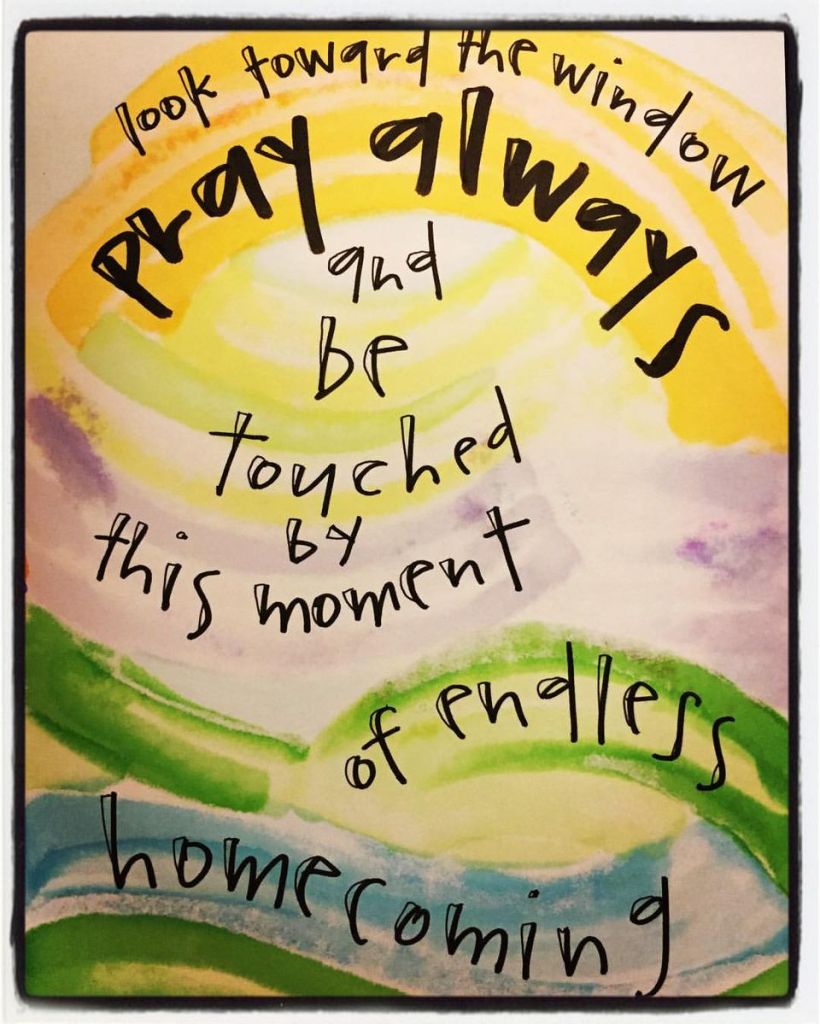 look toward the window
pray always
and
be
touched
by
this moment
of endless
homecoming